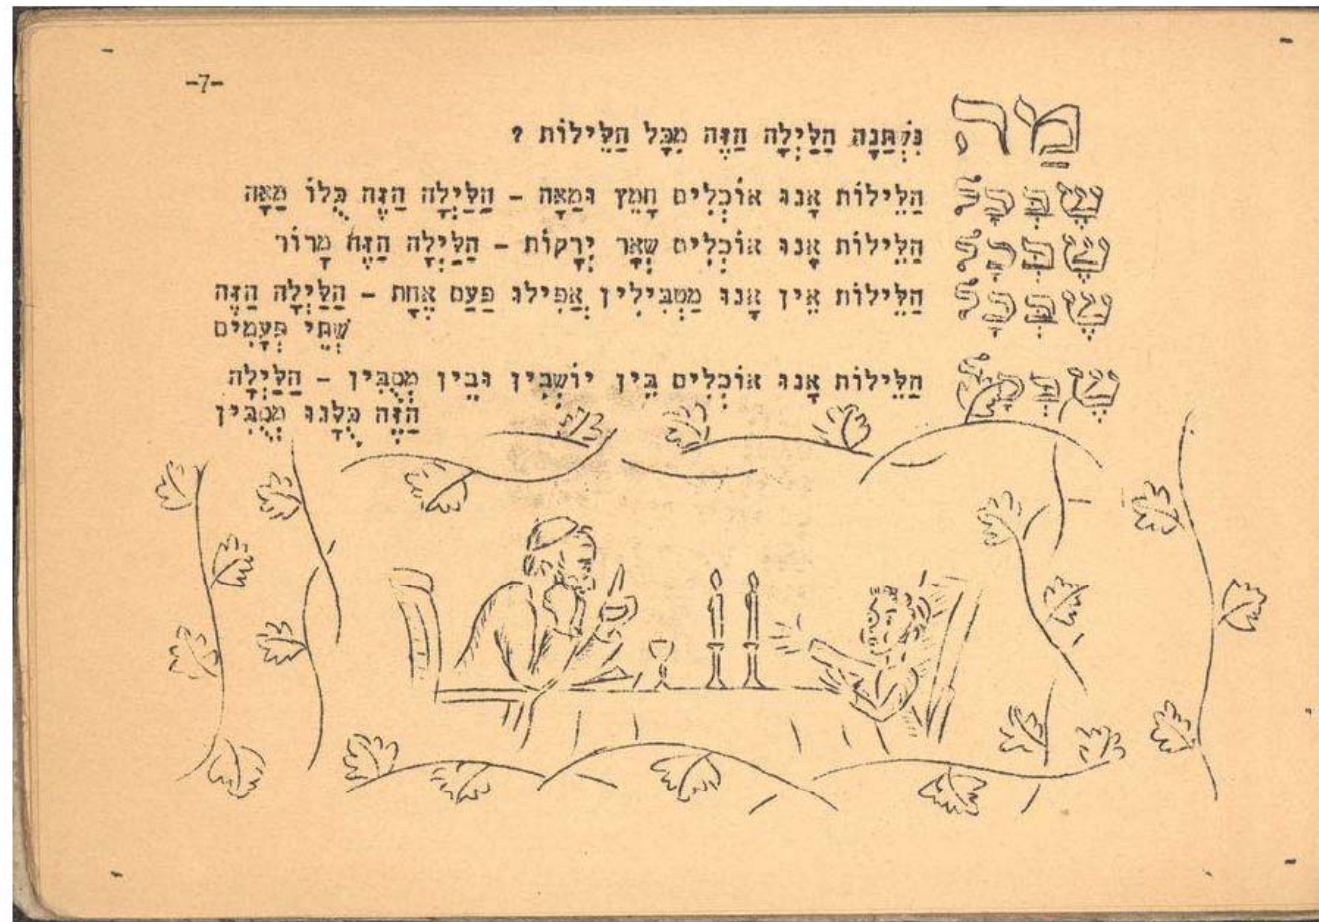 -7-
מַה נִּשְׁתַּנָה הַלַּיְלָה הַזֶּה מִכָּל הַלֵּילוֹת ?
שֶׁבְּכָל הַלֵּילוֹת אָנוּ אוֹכְלִים חָמֵץ וּמַצָּה – הַלַּיְלָה הַזֶּה כֻּלּוֹ מַצָּה
שֶׁבְּכָל הַלֵּילוֹת אָנוּ אוֹכְלִים שְׁאָר יְרָקוֹת – הַלַּיְלָה הַזֶּה מָרוֹר
שֶׁבְּכָל הַלֵּילוֹת אֵין אָנוּ מַטְבִּילִין אֲפִילוּ פַּעַם אֶחָת – הַלַּיְלָה הַזֶּה
שְׁתֵּי פְּעָמִים
שֶׁבְּכָל הַלֵּילוֹת אָנוּ אוֹכְלִים בֵּין יוֹשְׁבִין וּבֵין מְסֻבִּין – הַלַּיְלָה
הַזֶּה כֻּלָּנוּ מְסֻבִּין